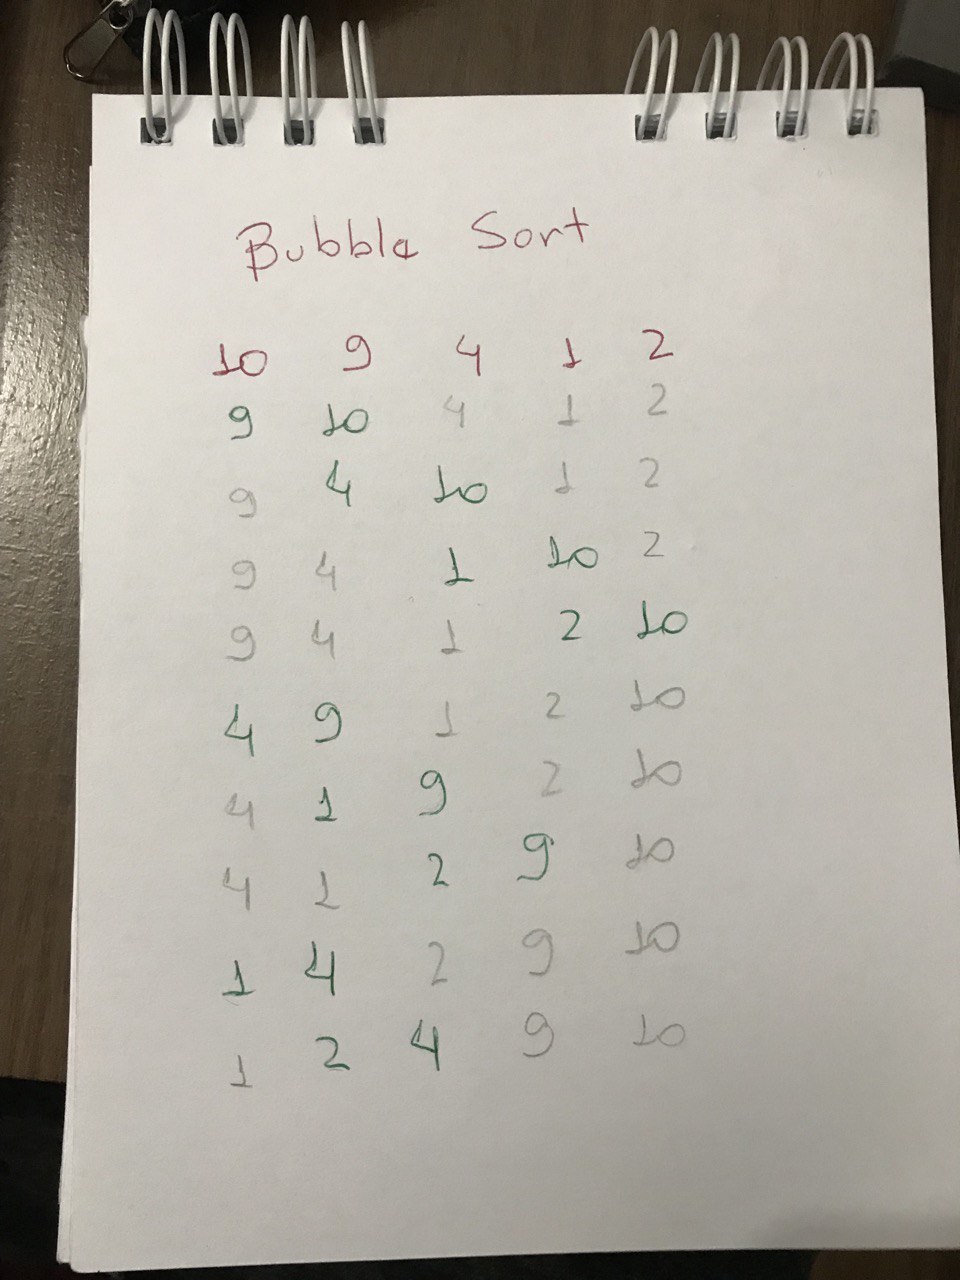 Bubble Sort
10 9 4 1 2
9 10 4 1 2
9 4 10 1 2
9 4 1 10 2
9 4 1 2 10
4 9 1 2 10
4 1 9 2 10
4 1 2 9 10
1 4 2 9 10
1 2 4 9 10